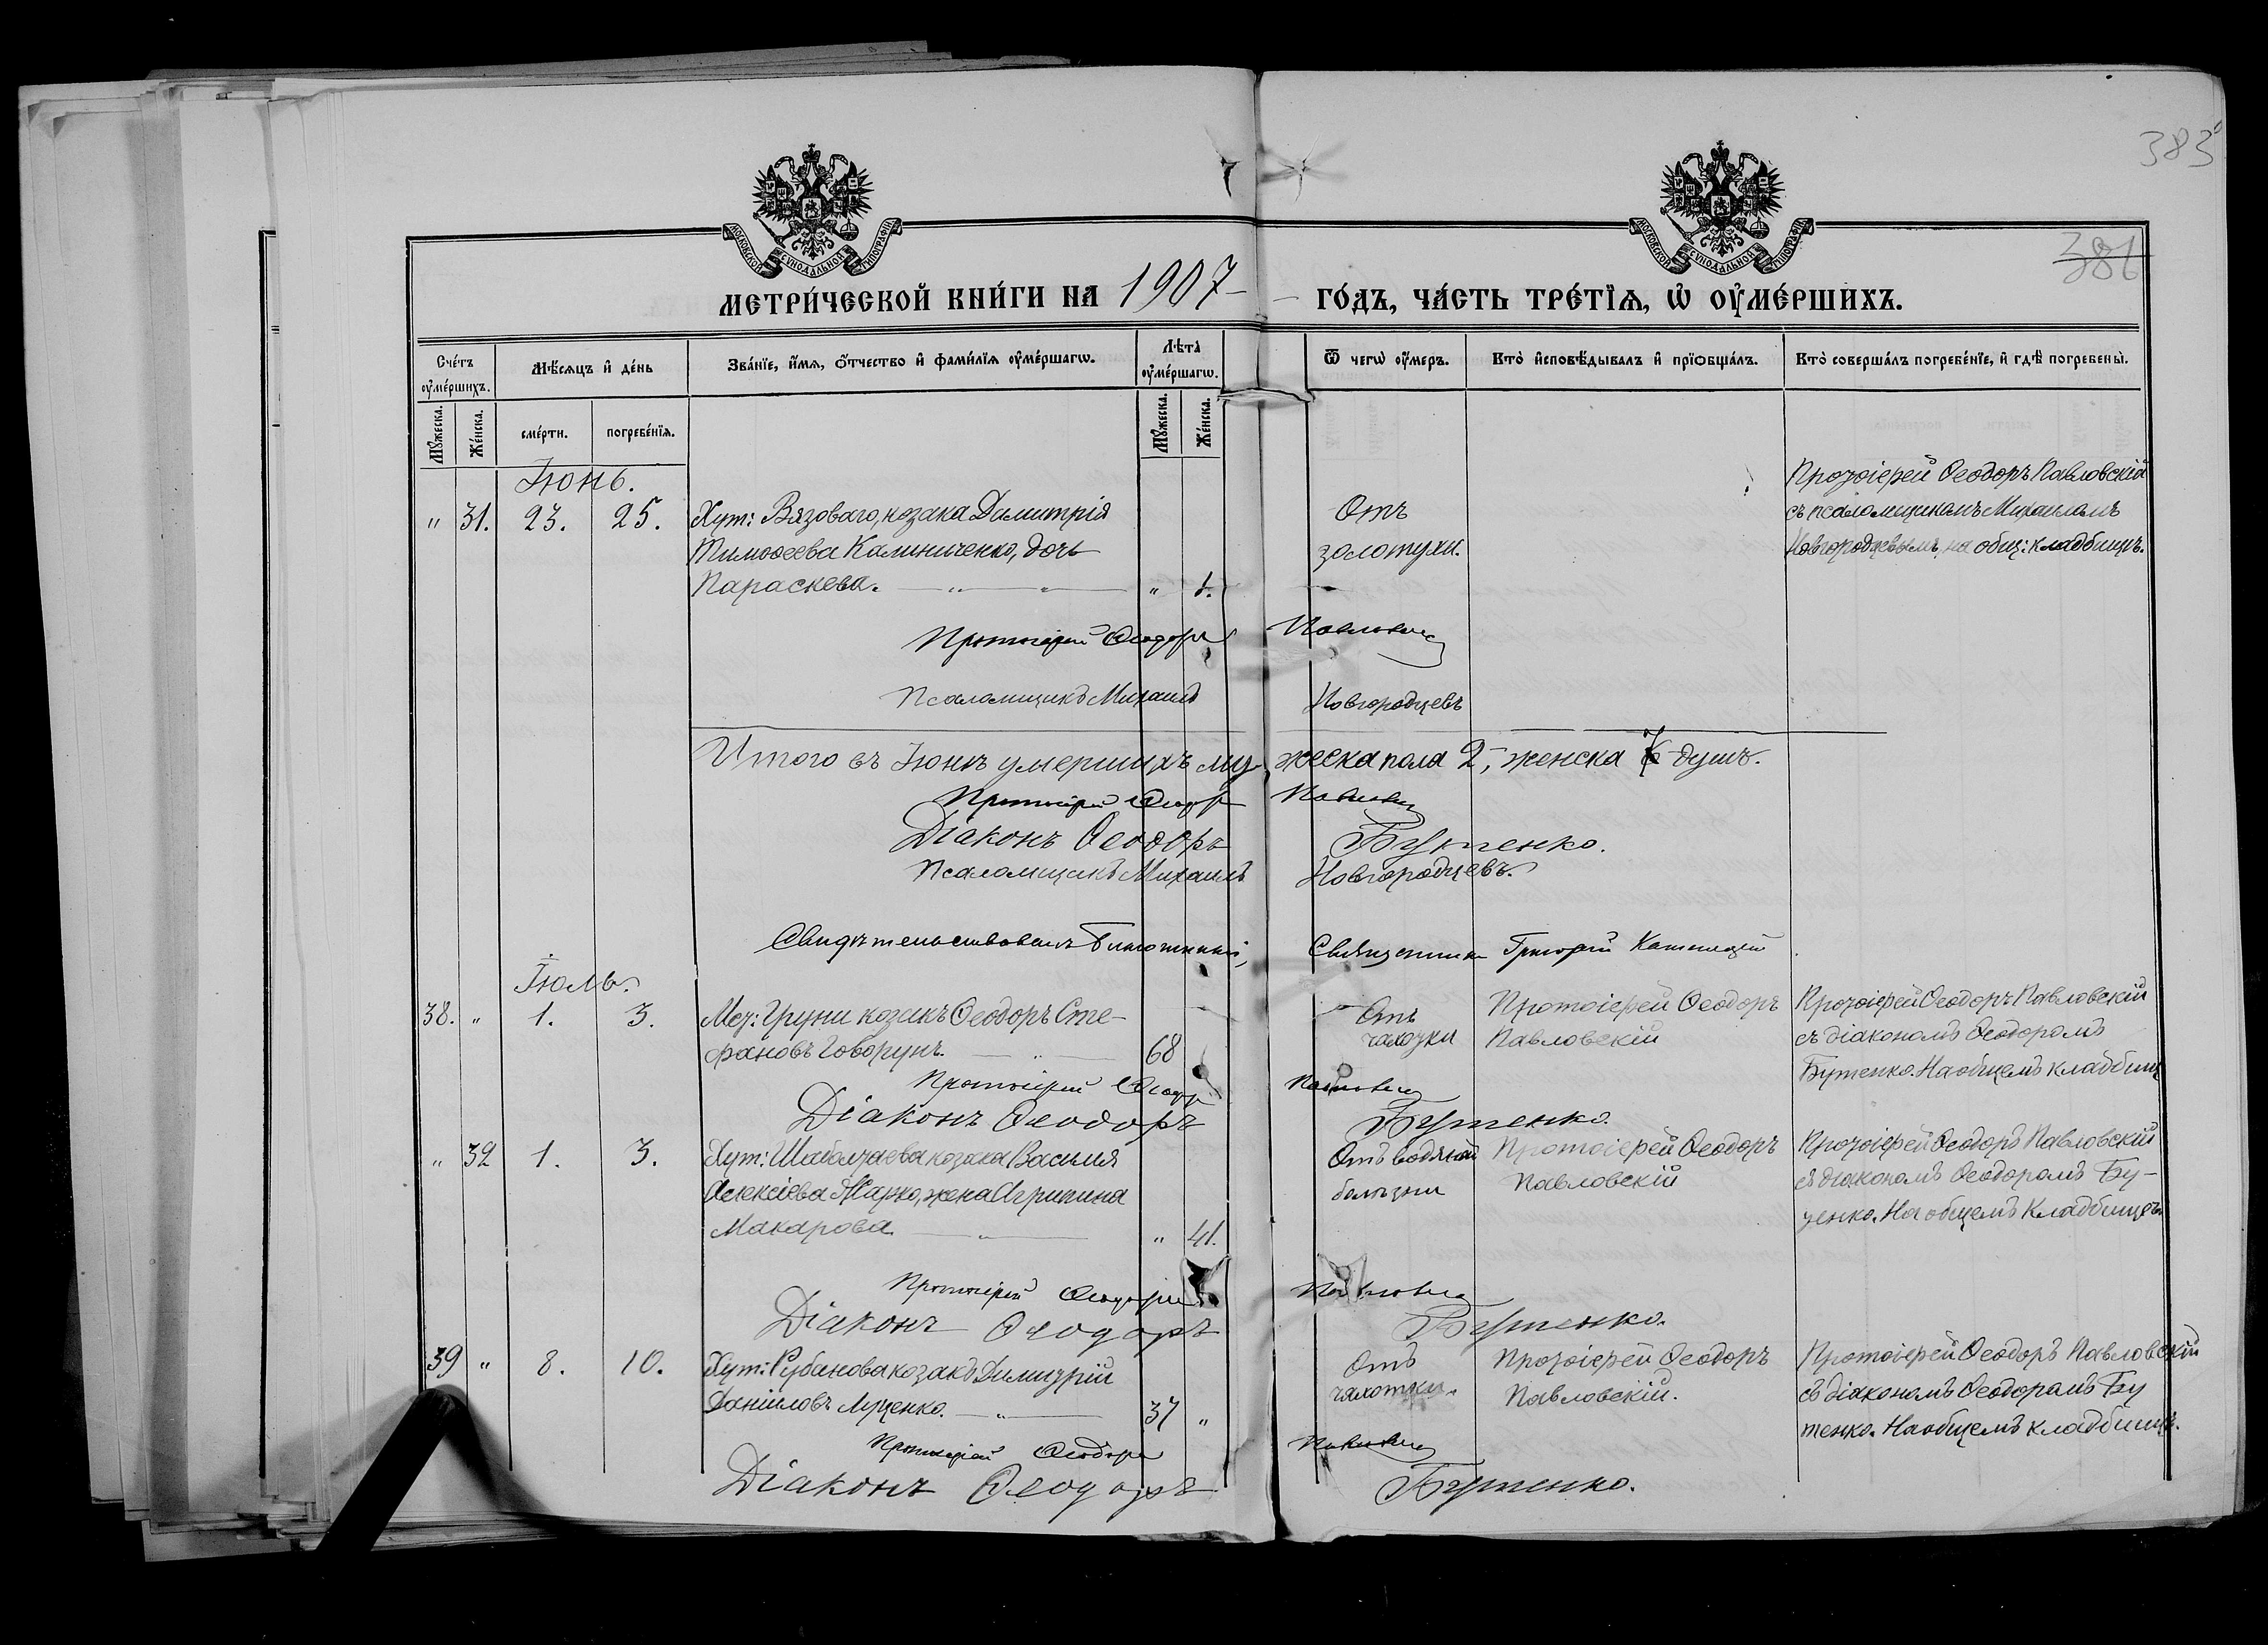 383
381
МОСКОВСКОЙ СѴНОДАЛЬНОЙ ТИПОГРАФІИ
МОСКОВСКОЙ СѴНОДАЛЬНОЙ ТИПОГРАФІИ
МЕТРИ́ЧЕСКОЙ КНИ́ГИ НА 1907 ГО́ДЪ, ЧА́СТЬ ТРЕ́ТЇѦ, Ѡ҆ ОУ҆МЕ́РШИХЪ.
Сче́тъ оу҆ме́ршихъ.
Мѣ́сѧцъ и҆ де́нь
Зва́нїе, и҆́мѧ, ѻ҆́тчество и҆ фами́лїѧ оу҆ме́ршагѡ.
Лѣта̀ оу҆ме́ршагѡ.
Ѿ чегѡ̀ оу҆́меръ.
Кто̀ и҆сповѣ́дывалъ и҆ прїѻбща́лъ.
Кто̀ соверша́лъ погребе́нїе, и҆ гдѣ̀ погребены̀.
Мꙋ́жеска.
Же́нска.
сме́рти.
погребе́нїѧ.
Мꙋ́жеска.
Же́нска.
Іюнь.
" 31. 23. 25. Хут: Вязоваго, козака Димитрія
Тимоѳеева Калиниченко, дочь
Параскева. — " — " — " 1.
Отъ
золотухи.
Протоіерей Ѳеодоръ Павловскій
съ псаломщикомъ Михаиломъ
Новгородцевымъ, на общ: кладбищѣ.
Протоіерей Ѳеодоръ Павловскій
Псаломщикъ Михаилъ Новгородцевъ
Итого въ Іюнѣ умершихъ мужеска пола 2, женска 7 душъ.
Протоіерей Ѳеодоръ Павловскій
Діаконъ Ѳеодоръ Бутенко.
Псаломщикъ Михаилъ Новгородцевъ.
Свидѣтельствовалъ Благочинный, Священникъ Григорій
Іюль.
38. " 1. 3. Мез: Груни козакъ Ѳеодоръ Сте-
фановъ Говорунъ. — " — 68
Отъ
чахотки
Протоіерей Ѳеодоръ
Павловскій
Протоіерей Ѳеодоръ Павловскій
съ діакономъ Ѳеодоромъ
Бутенко. На общемъ кладбищ
Протоіерей Ѳеодоръ Павловскій
Діаконъ Ѳеодоръ Бутенко.
" 32 1. 3. Хут: козака Василія
Алексіева Жарко, жена Агрипина
Макарова. — " — " 41.
Отъ водяной
болѣзни
Протоіерей Ѳеодоръ
Павловскій
Протоіерей Ѳеодоръ Павловскій
съ діакономъ Ѳеодоромъ Бу-
тенко. На общемъ кладбищѣ.
Протоіерей Ѳеодоръ Павловскій
Діаконъ Ѳеодоръ Бутенко.
39 " 8. 10. Хут: Рубанова козакъ Димитрій
Даніиловъ Луценко. — " — 37 "
Отъ
чахотки.
Протоіерей Ѳеодоръ
Павловскій.
Протоіерей Ѳеодоръ Павловскій
съ діакономъ Ѳеодоромъ Бу
тенко. На общемъ кладбищѣ.
Протоіерей Ѳеодоръ Павловскій
Діаконъ Ѳеодоръ Бутенко.